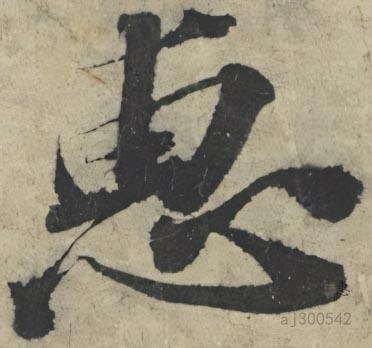 惠
惠
aj300542